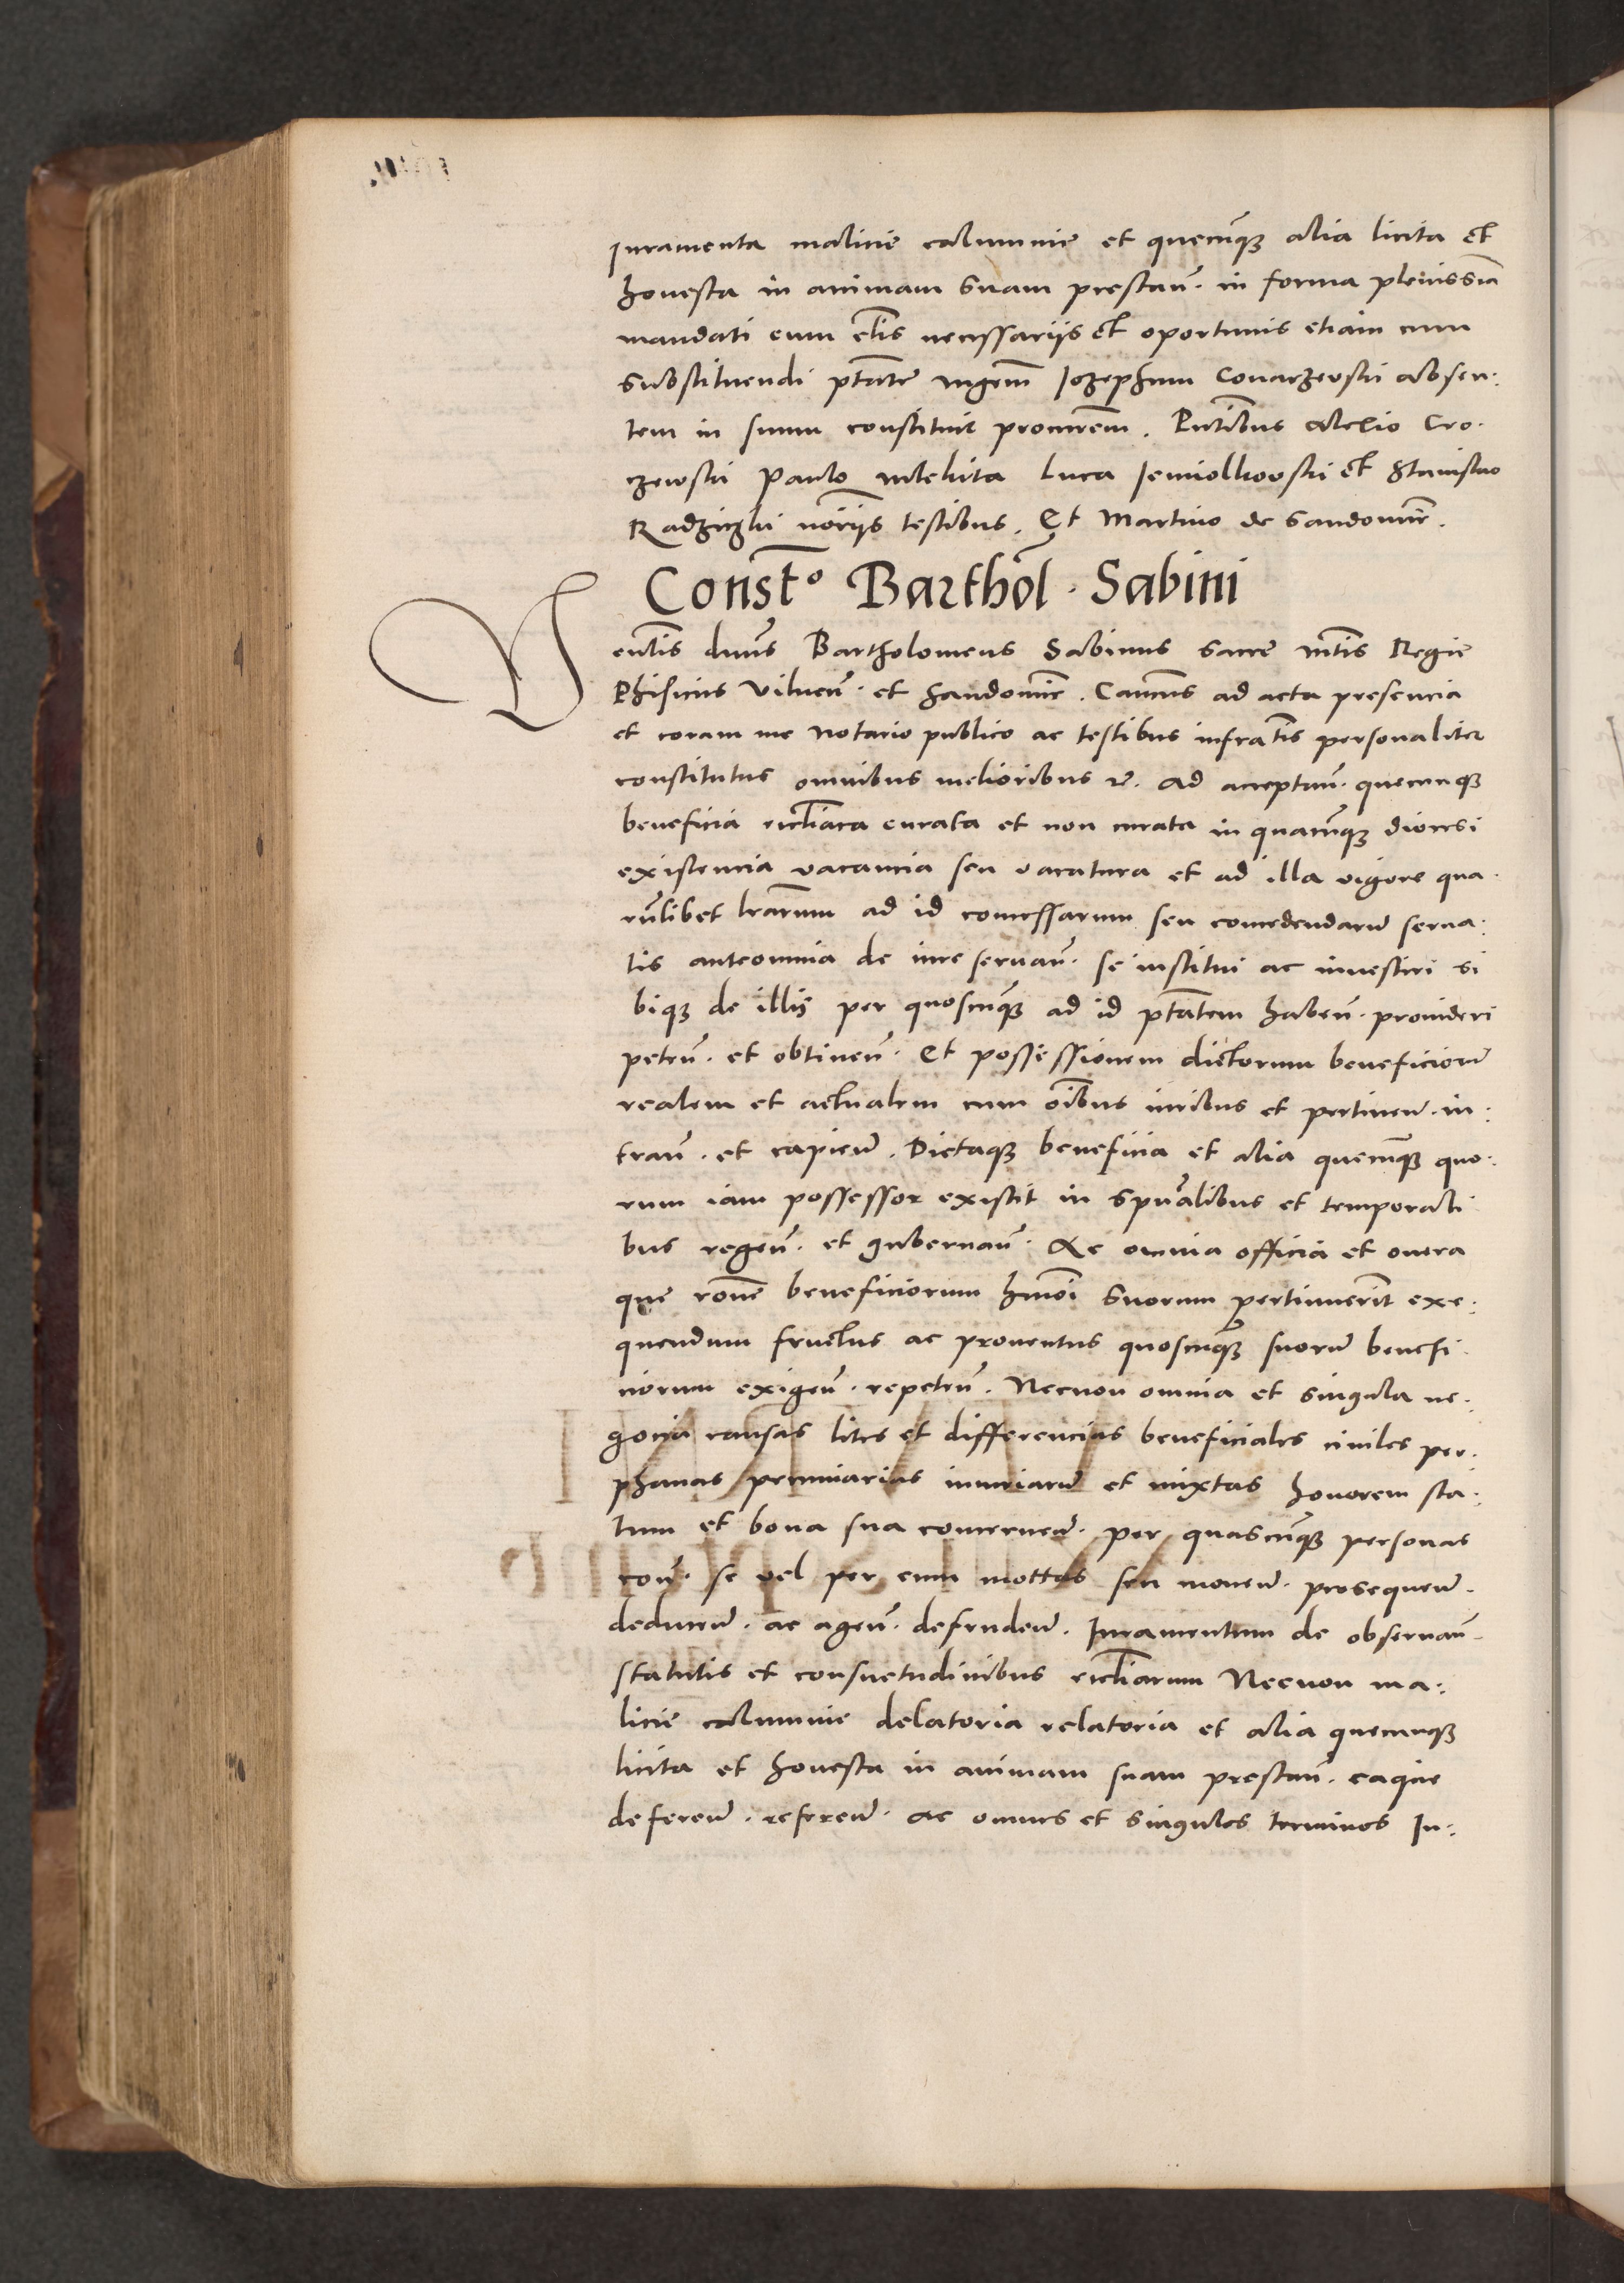 Juramenta malicie calumnie et quecunqȝ alia licita et
honesta in animam suam prestan̄. in forma plenissīa
mandati cum clis necessarijs et oportunis etiam cum
substituendi ptāte ingen̄m Jozephum Conarzewski absen:
tem in suum constituit procurēm. Pntībus Alexio Cro.
zewski Paulo Mlekita Luca Jemiolkowski et Stanislao
Radzichi notrijs testibus. Et Martino de Sandomir.
Const̄o Barthol̄. Sabini
V
en̄lis dn̄us Bartholomeus Sabinus sacre mt̄is Regie
Phisicus Vilnen̄. et Sandomir. Canc̄us ad acta presencia
et coram me notario publico ac testibus infratīs personaliter
constitutus omnibus melioribus rc. ad acceptan̄. quecunqȝ
beneficia eccl̄iaca curata et non curata in quacūqȝ diocesi
existencia vacancia seu vacatura et ad illa vigore qua.
rūlibet lr̄arum ad id concessarum seu concedendarū serua:
tis anteomnia de iure seruan̄. se institui ac inuestiri si
biqȝ de illis per quoscūqȝ ad id ptātem haben̄. prouideri
peten̄. et obtinen̄. Et possessionem dictorum beneficiorū
realem et actualem cum oībus iuribus et pertinen̄. in:
tran̄. et capien̄. Dictaqȝ beneficia et alia quecūqȝ quo:
rum iam possessor existit in spūalibus et temporali
bus regen̄. et gubernan̄. Ac omnia officia et onera
que rōne beneficiorum hmōi suorum pertinuerīt exe:
quendum fructus ac prouentus quoscūqȝ suorū benefi.
ciorum exigen̄. repeten̄. Necnon omnia et singula ne.
gocia causas lites et differencias beneficiales ciuiles per.
phanas pecuniarias iniuriarū et mixtas honorem sta:
tum et bona sua concernen̄. per quascūqȝ personas
con̄. se vel per eum mottas seu mouen̄. prosequen̄.
deducen̄. ac agen̄. defenden̄. Juramentum de obseruan̄
statutis et consuetudinibus eccl̄iarum Necnon ma:
licie calumnie delatoria relatoria et alia quecunqȝ
licita et honesta in animam suam prestan̄. eaque
deferen̄. referen̄. ac omnes et singulos terminos In: